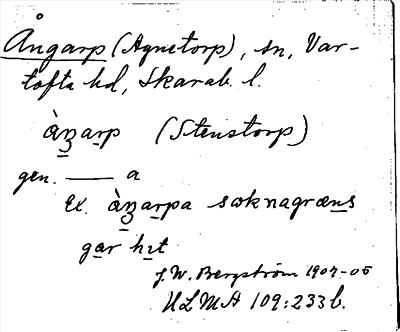 Ångarp (Agnetorp), sn, Var-
tofta hd, Skarab. l.
àṉgarp (Stenstorp)
gen. —— a
Ex. àṉgarpa sɷknagræns
gar hit
J. W. Bergström 1904-05
ULMA 109:233 b.